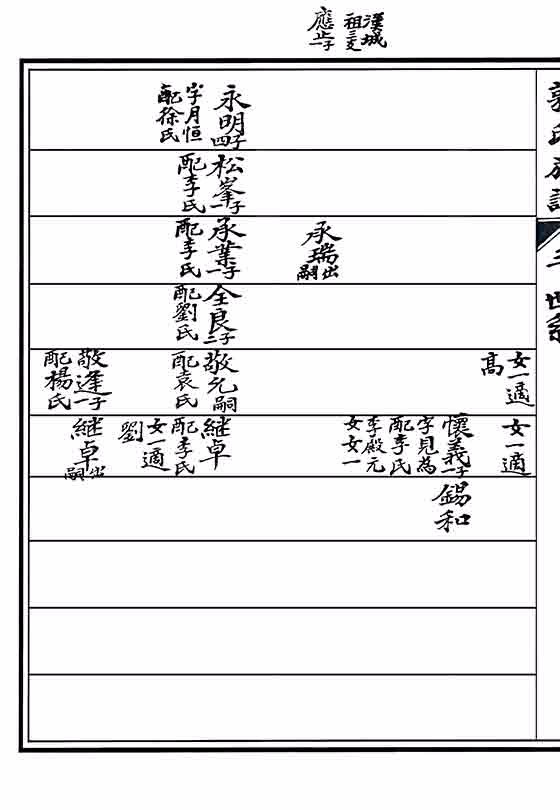 漢城
祖三支
應止一子
郭氏族譜
永明四子
字月恒
配徐氏
松峯一子
配李氏
承瑞出嗣
承業一子
配李氏
全良二子
配劉氏
女一適
高
敬允嗣
配袁氏
敬逢一子
配楊氏
女一適
懷義一子
字見為
配李氏
李殿元
女女一
繼卓
配李氏
女一適
劉
繼卓出嗣
錫和